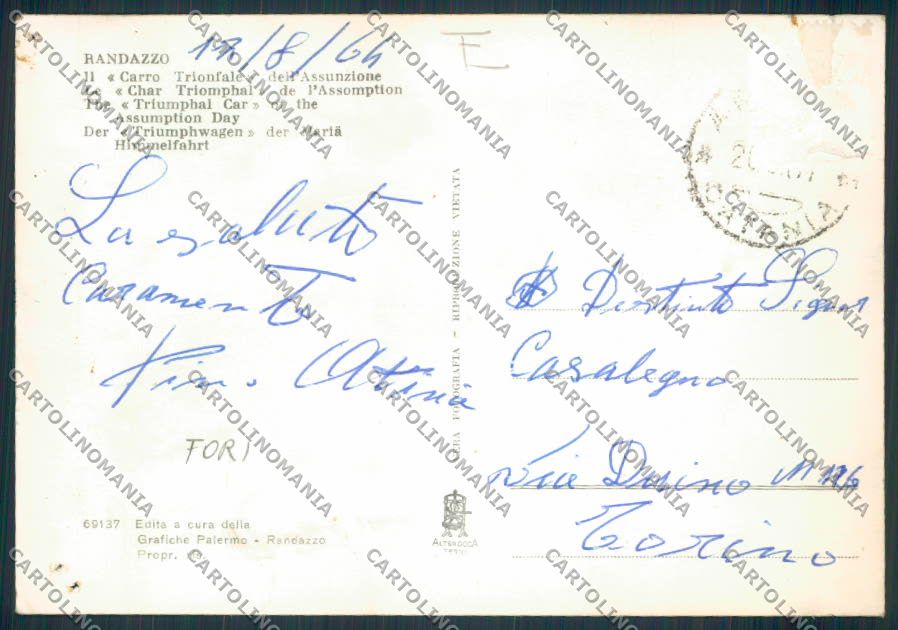 RANDAZZO 17/8/64
Il « Carro Trionfale » dell'Assunzione
Le « Char Triomphal » de l'Assomption
The « Triumphal Car » of the
Assumption Day
Der « Triumphwagen » der Mariä
Himmelfahrt
E
CATANIA
La saluto
Caramente
Pino
FORI
VERA FOTOGRAFIA - RIPRODUZIONE VIETATA
Distinto Signor
Casalegno
Via Duino N 176
Torino
69137 Edita a cura della
Grafiche Palermo - Randazzo
Propr. ris.
ALTEROCCA
TERNI
CARTOLINOMANIA